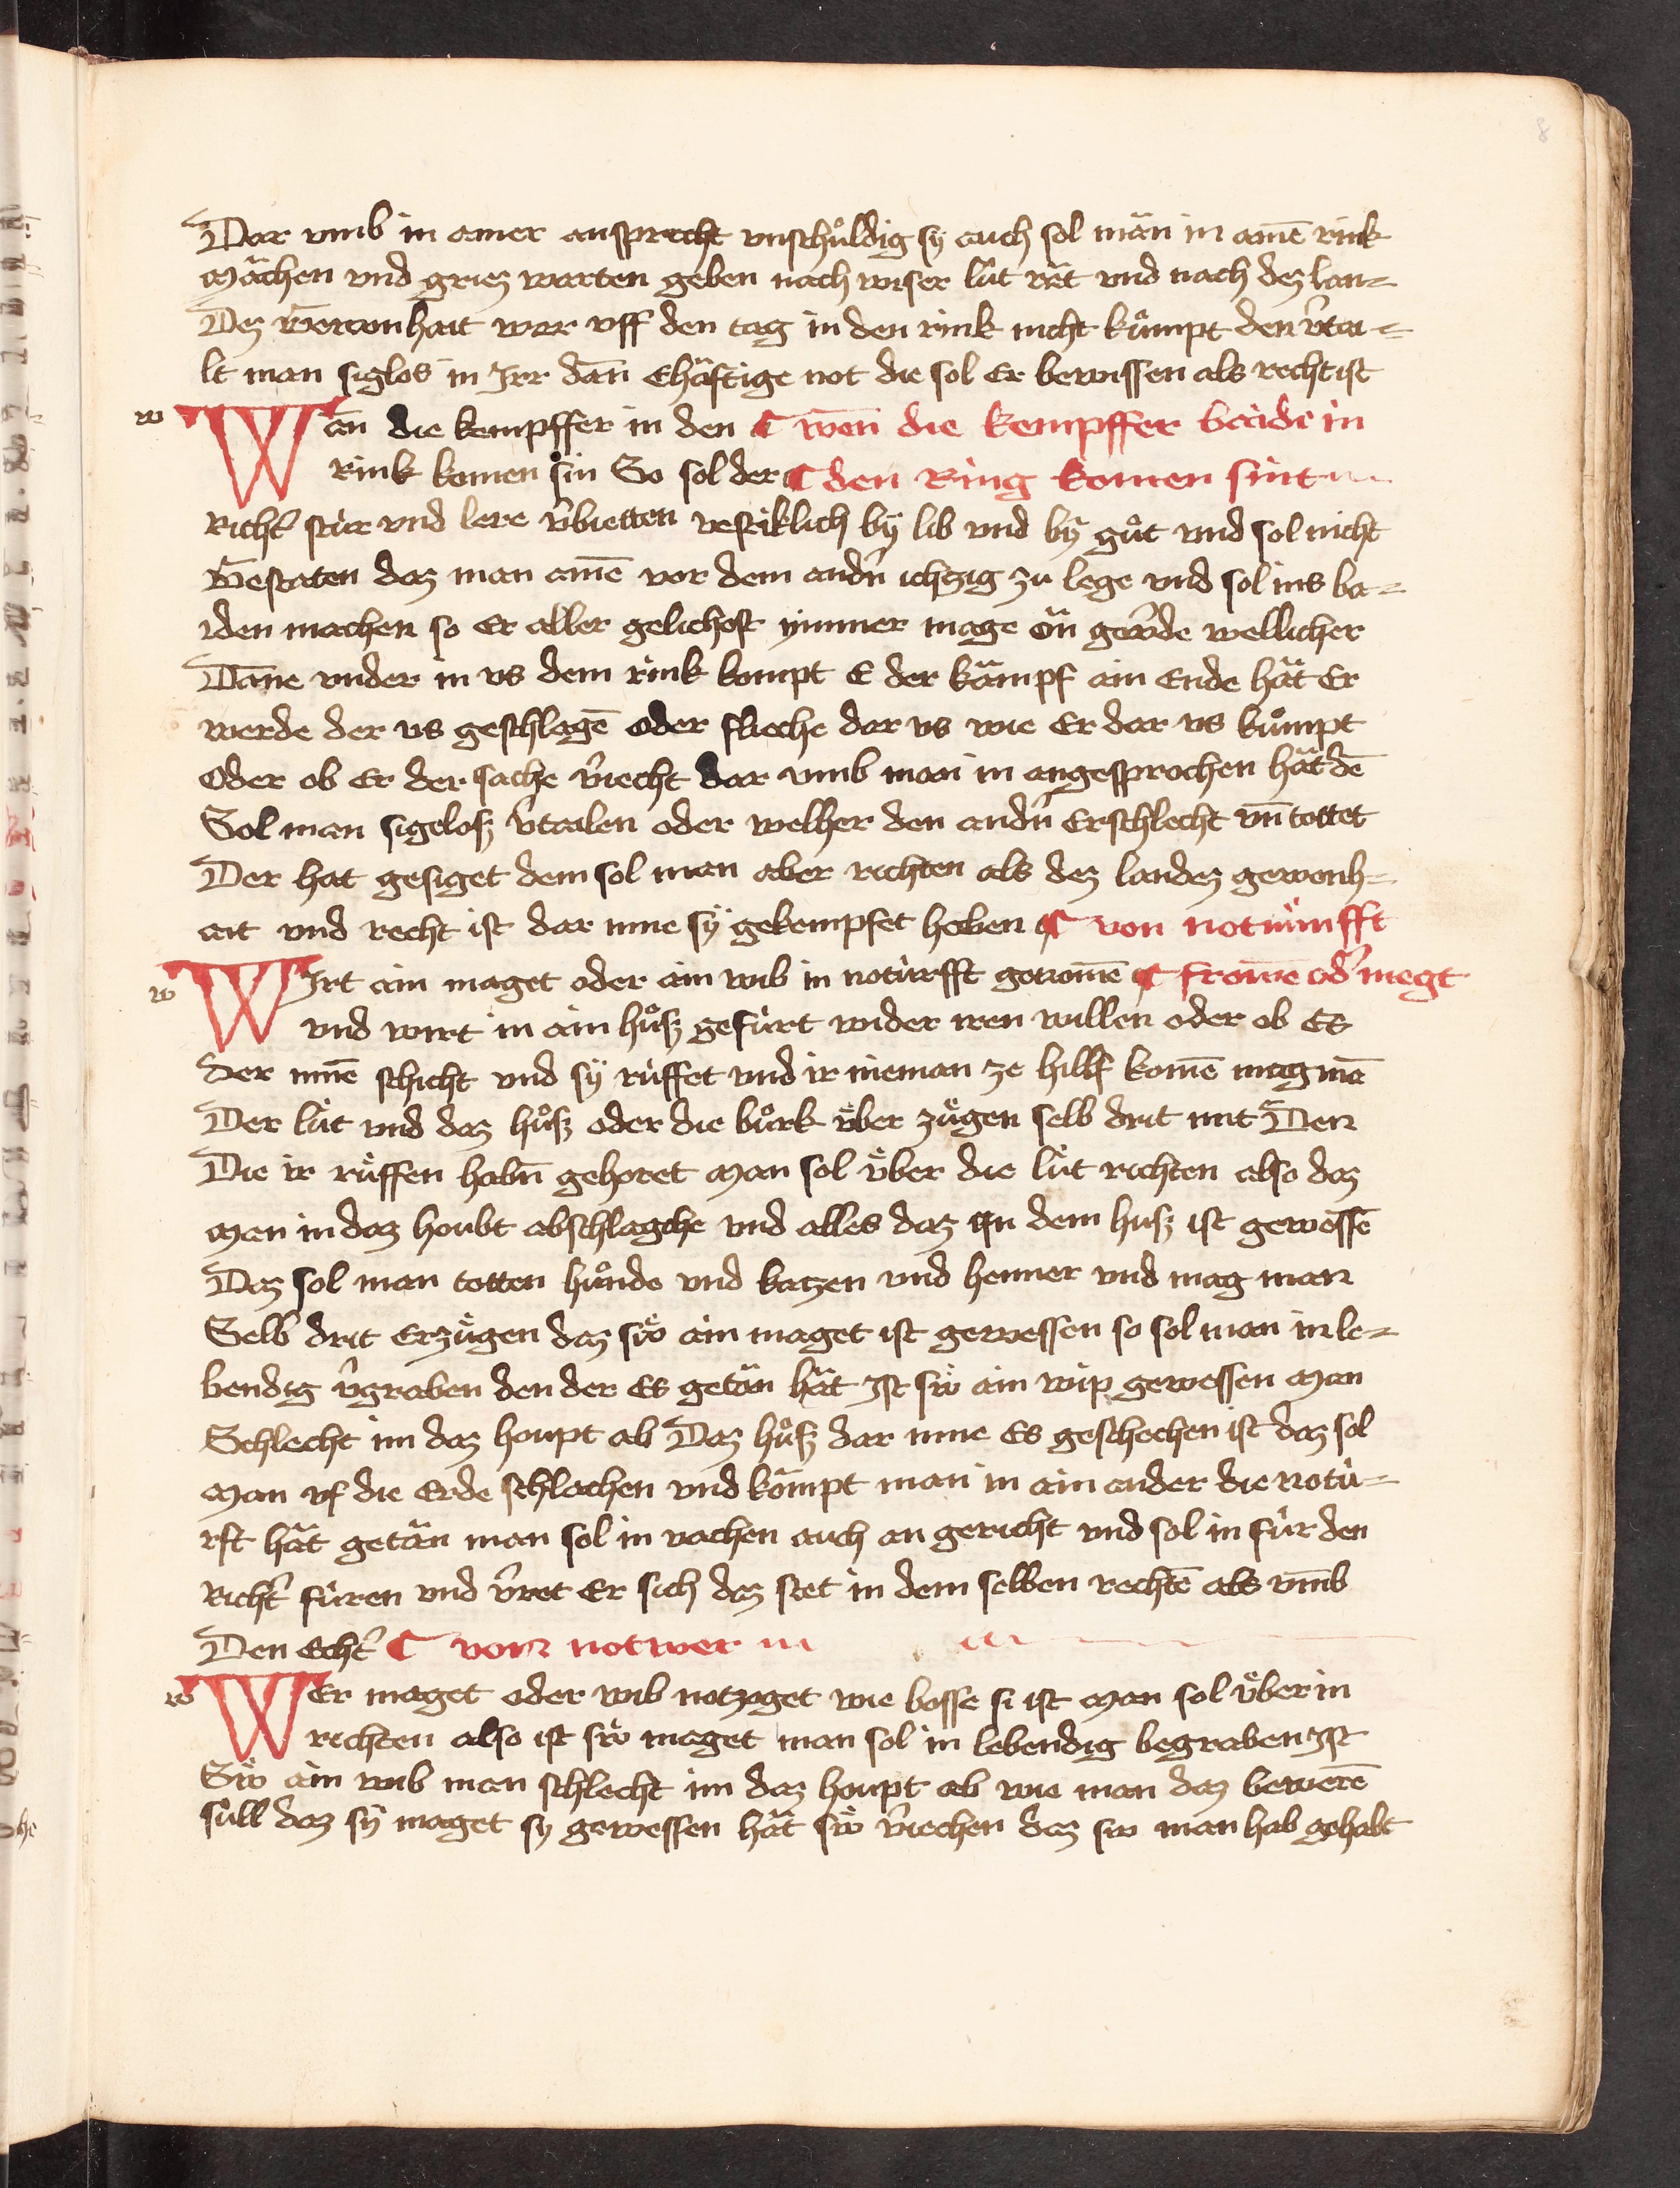 8
Dar vmb in ainer ansprecht vnschůldig sÿ auch sol män in ainē rink
Mächen vnd griez warten geben nach wiser lüt rät vnd nach dez lan-
Dez Gewonhait wer vff den tag in den rink nicht kůmpt den v̂tai-
lt man siglos in Jrr dan̄ Ehäftige not die sol Er bewissen als recht ist
w
Wan̄ die kempffer in den ¶ wen̄ die kempffer baide in
rink komen sin So sol der ¶ den Ring komen sint
Richt̂ stür vnd lere v̂bietten vestiklich bÿ lib vnd bÿ gůt vnd sol nicht
Gestaten daz man ainē vor dem andn̂ ichtzig zu lege vnd sol ins ba-
iden machen so Er aller gelichost ymmer mage än gev̂de wellicher
Dan̄e vnder in vs dem rink kompt E der kämpf ain Ende hät Er
werde der vs geschlagē oder flieche dar vs wie Er dar vs kůmpt
Oder ob Er der sache v̂iecht dar vmb man in angesprochen hät dē
Sol man sigelosz v̂tailen oder welher den andn̂ Erschlecht vn̄ tottet
Der hat gesiget dem sol man aber richten als dez landez gewonh-
ait vnd recht ist dar inne sÿ gekempfet haben ¶ von notnünfft
w
WIrt ain maget oder ain wib in notürfft genomē ¶ frowē od̂ megt
vnd wirt in ain hůsz gefürt wider iren willen oder ob Es
der innē schicht vnd sÿ rüffet vnd ir nieman ze hillf komē mag mā
Der lüt vnd daz hůsz oder die bůrk v̈ber zügen selb drit mit Den
Die ir rüffen habn̄ gehoret Man sol v̈ber die lüt richten also daz
Man in daz houbt abschlagche vnd alles daz in dem husz ist gewessē
Daz sol man totten hůnde vnd katzen vnd henner vnd mag man
Selb drit Erzügen daz siw̋ ain maget ist gewessen so sol man in le-
bendig v̂graben den der Es getän hät Jst siw ain wip gewessen Man
Schlecht im daz houpt ab Daz hůsz dar inne Es geschechen ist daz sol
Man vf die Erde schlachen vnd kömpt man in ain ander die notü-
rft hät getän man sol in vachen auch an gericht vnd sol in für den
Richt̂ füren vnd v̂ret Er sich daz stet in dem selben rechtē als vm̄b
Den Echt̂ ¶ vom notwer
w
WEr maget oder wib notzoget wie bosse si ist Man sol v̈ber in
richten also ist siw̋ maget man sol in lebendig begraben Jst
Siw̋ ain wib man schlecht im daz houpt ab wie man daz bewerē
süll daz sÿ maget sy gewessen hät siw̋ v̂iechen daz siw man hab gehabt